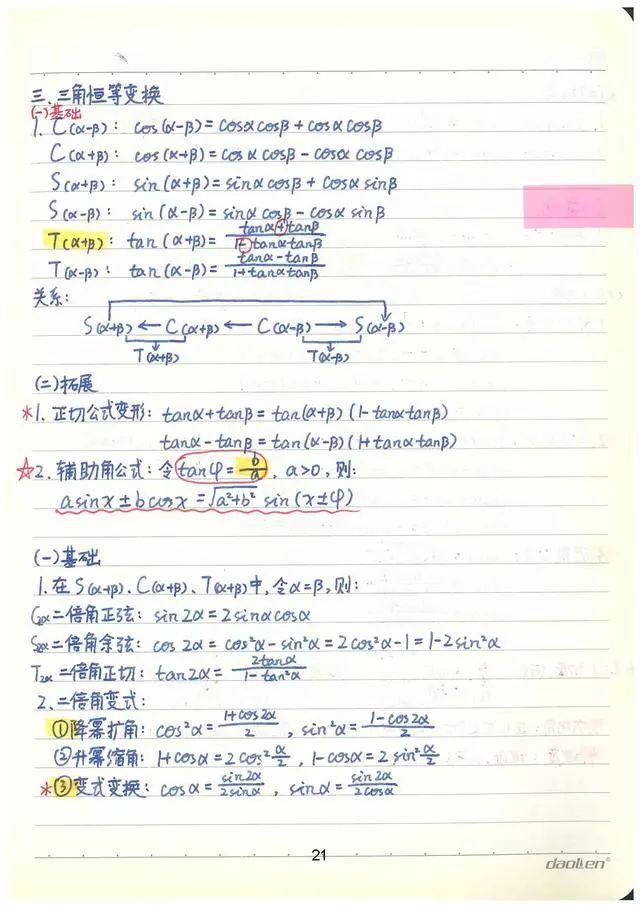 三、三角恒等变换
(一)基础
1. C(α-β): cos(α-β)=cosαcosβ+cosαcosβ
C(α+β): cos(α+β)=cosαcosβ-cosαcosβ
S(α+β): sin(α+β)=sinαcosβ+cosαsinβ
S(α-β): sin(α-β)=sinαcosβ-cosαsinβ
T(α+β): tan(α+β)=\frac{tanα+tanβ}{1-tanαtanβ}
T(α-β): tan(α-β)=\frac{tanα-tanβ}{1+tanαtanβ}
关系:
S(α+β)←C(α+β)←C(α-β)→S(α-β)
T(α+β) T(α-β)
(二)拓展
*1. 正切公式变形: tanα+tanβ=tan(α+β)(1-tanαtanβ)
tanα-tanβ=tan(α-β)(1+tanαtanβ)
☆2. 辅助角公式:令tanφ=\frac{b}{a}, a>0, 则:
asinx±bcosx=\sqrt{a²+b²} sin(x±φ)
(一)基础
1.在S(α+β)、C(α+β)、T(α+β)中,令α=β,则:
C2α二倍角正弦: sin2α=2sinαcosα
S2α二倍角余弦: cos2α=cos²α-sin²α=2cos²α-1=1-2sin²α
T2α二倍角正切: tan2α=\frac{2tanα}{1-tan²α}
2.二倍角变式:
①降幂扩角: cos²α=\frac{1+cos2α}{2}, sin²α=\frac{1-cos2α}{2}
②升幂缩角: 1+cosα=2cos²\frac{α}{2}, 1-cosα=2sin²\frac{α}{2}
*③变式变换: cosα=\frac{sin2α}{2sinα}, sinα=\frac{sin2α}{2cosα}
21
daolen®